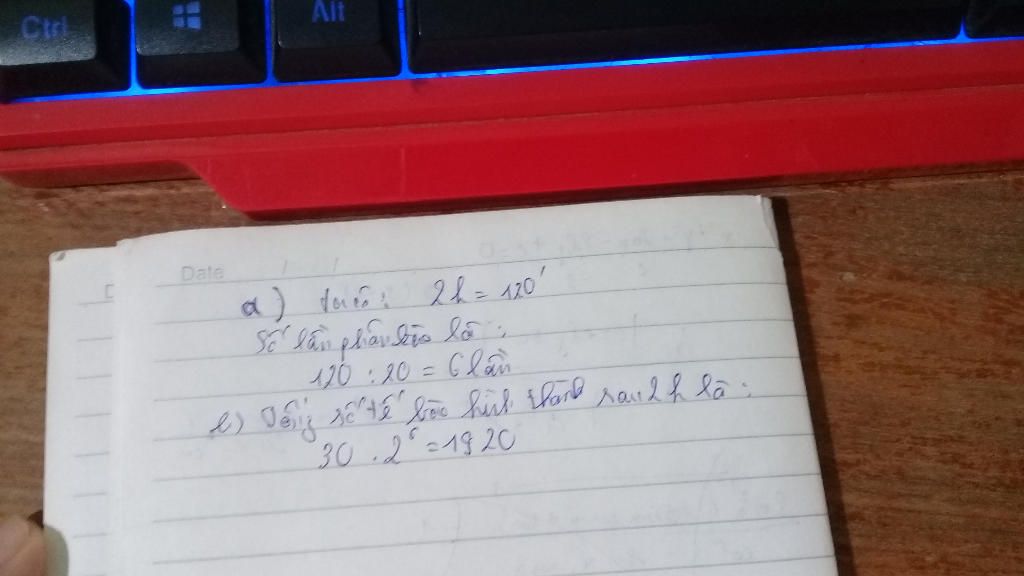 Ctrl
Alt
Date
a) ta có: 2h = 120'
Số lần phân bào là:
120 : 20 = 6 lần
b) Tổng số tế bào hình thành sau 2h là:
30 . 2⁶ = 1920